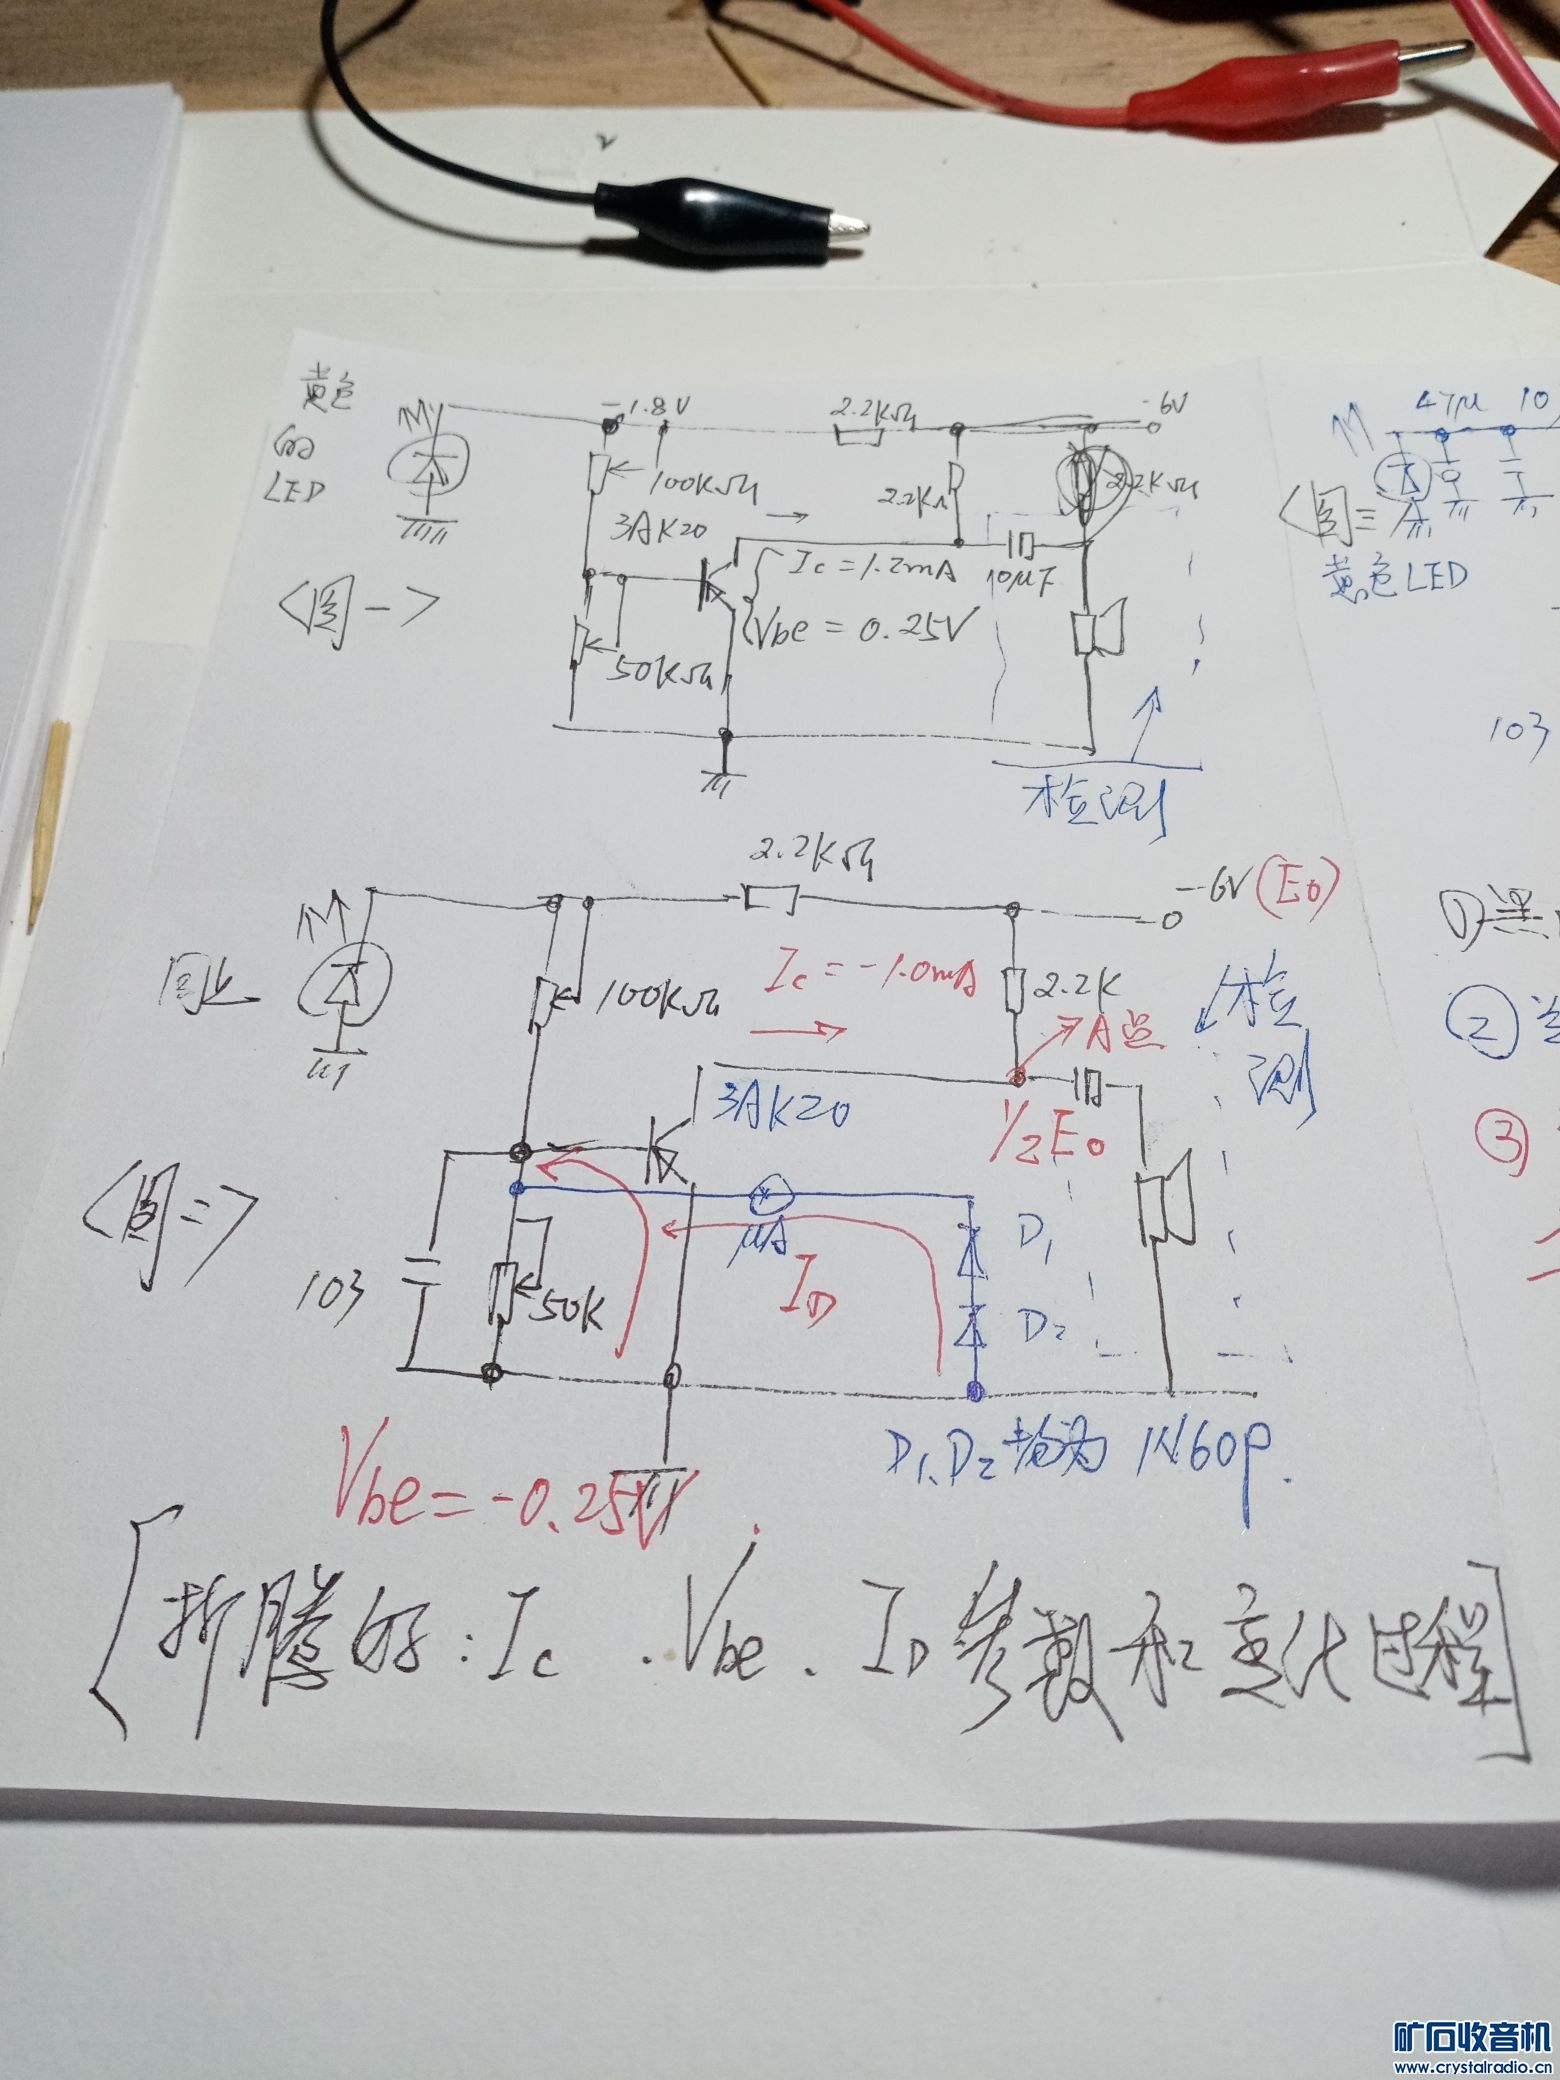 黄色
的
LED
-1.8V
2.2KΩ
-6V
100KΩ
2.2KΩ
2.2KΩ
3AK20
Ic=1.2mA
10μF
Vbe=0.25V
<图一>
50KΩ
检测
47μ
10
<图三
黄色LED
103
2.2KΩ
-6V(E0)
同上
100KΩ
Ic=-1.0mA
2.2K
A点
检
测
3AK20
1/2E0
<图二>
μA
D1
103
50K
ID
D2
Vbe=-0.25V
D1、D2均为1N60P.
[折腾的:Ic、Vbe、ID参数和变化过程]
①黑
②
③
矿石收音机
www.crystalradio.cn